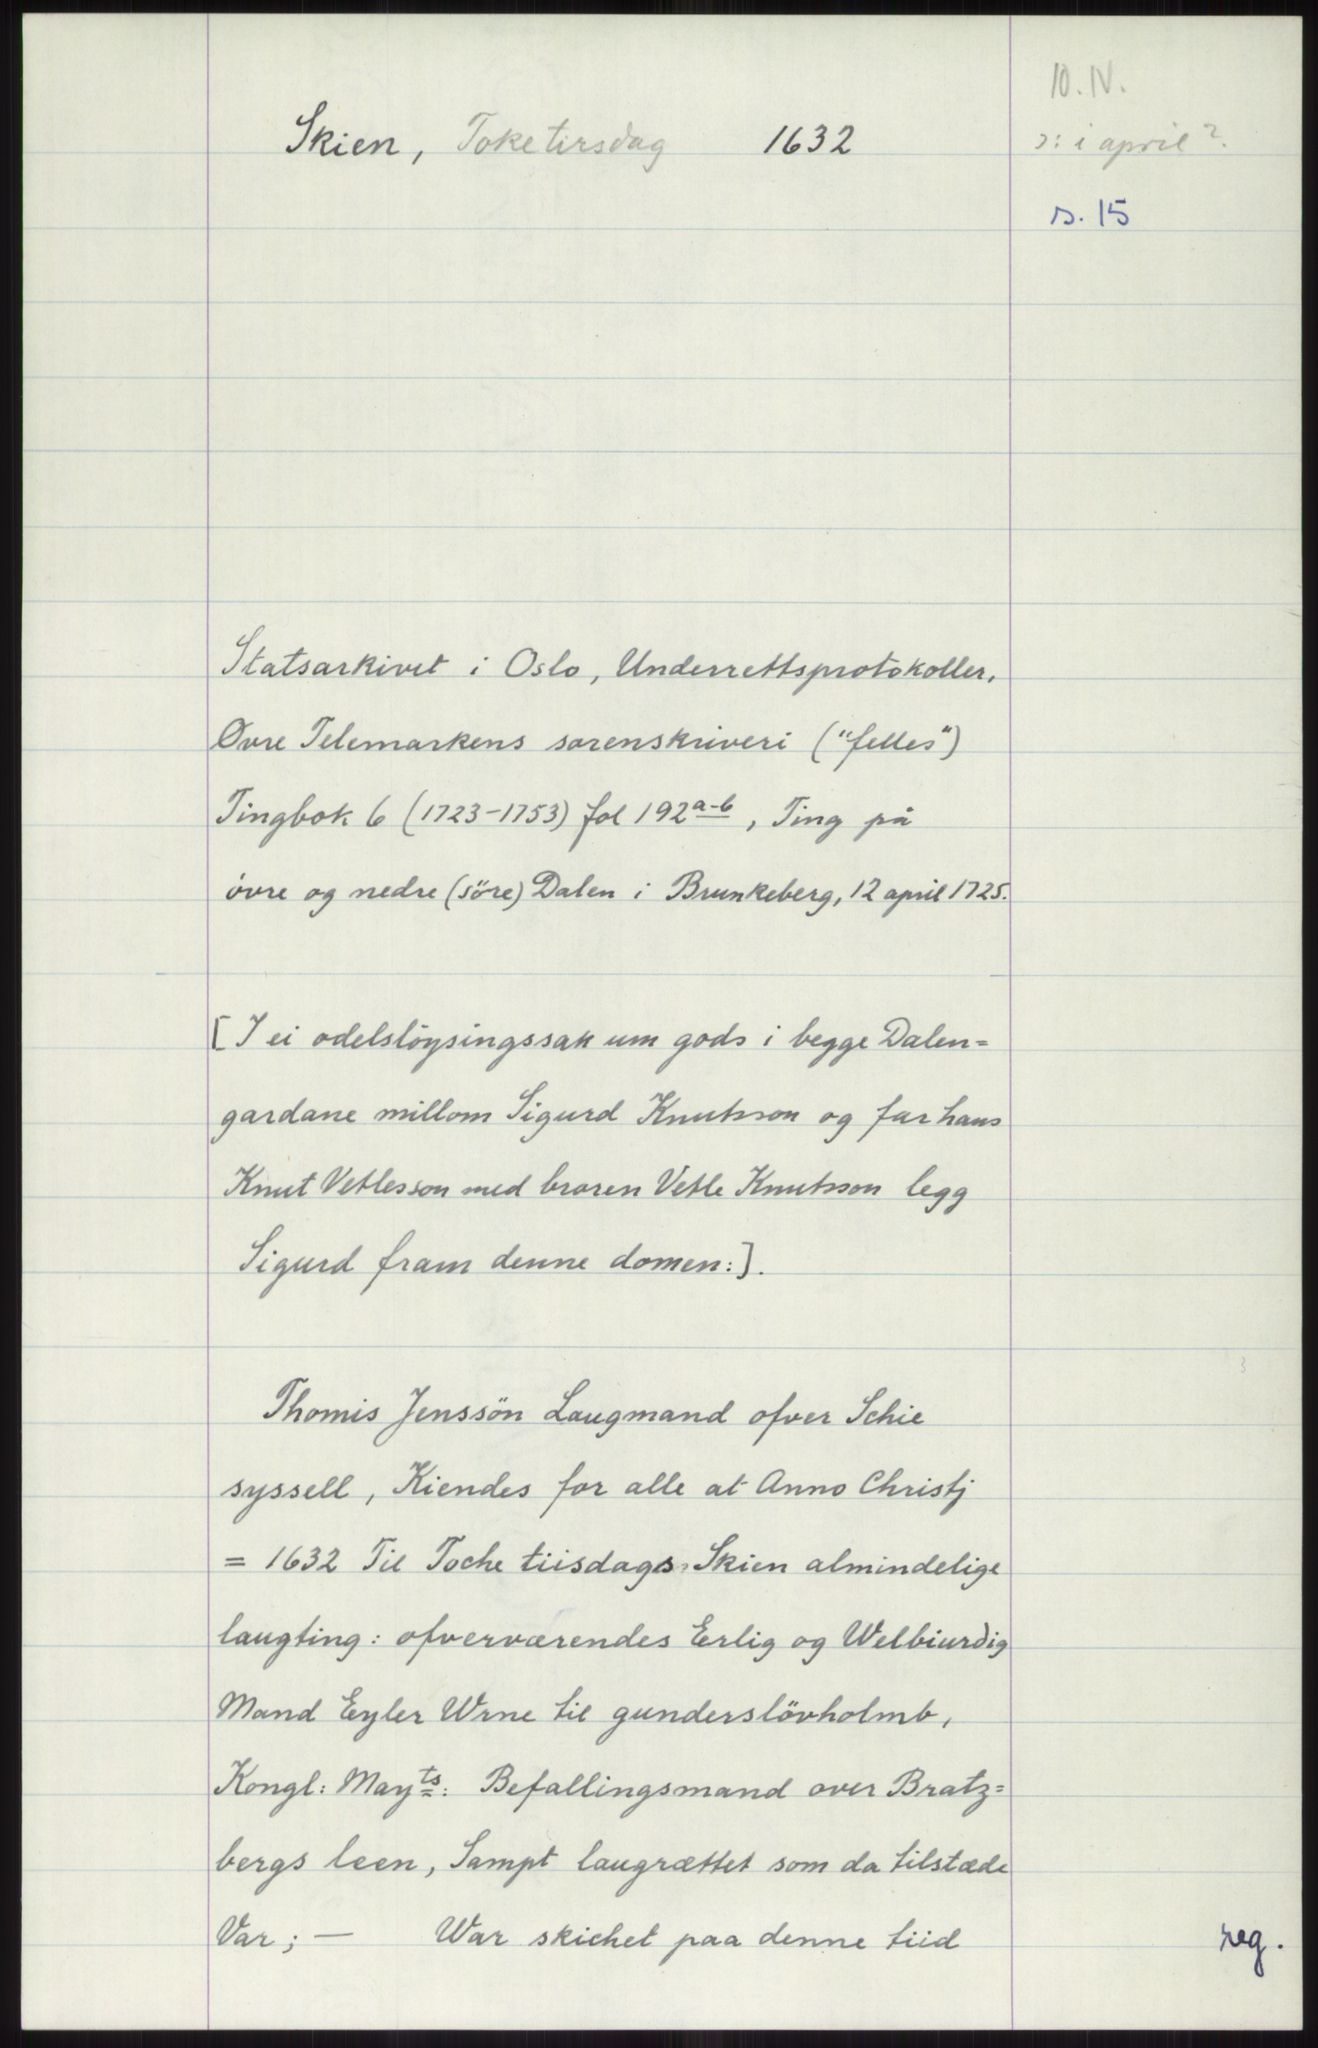 10. IV.
Skien, Toketirsdag 1632
ɔ: i april?
s. 15
Statsarkivet i Oslo, Underrettsprotokoller,
Øvre Telemarkens sorenskriveri ("felles")
Tingbok 6 (1723-1753) fol 192a-b, Ting på
övre og nedre (söre) Dalen i Brunkeberg, 12 april 1725.
[I ei odelslöysingssak um gods i begge Dalen=
gardane millom Sigurd Knutsson og far hans
Knut Vetlesson med broren Vetle Knutsson legg
Sigurd fram denne domen:].
Thomis Jenssön Laugmand ofver Schie
syssell, Kiendes for alle at Anno Christj
= 1632 Til Toche tiisdags Skien almindelige
laugting: ofverværendes Erlig og Welbiurdig
Mand Eyler Wrne til gunderslövholmb,
Kongl: Mayts: Befallingsmand over Bratz=
bergs leen, Sampt laugrættet som da tilstæde
Var; — War skichet paa denne tiid
reg.